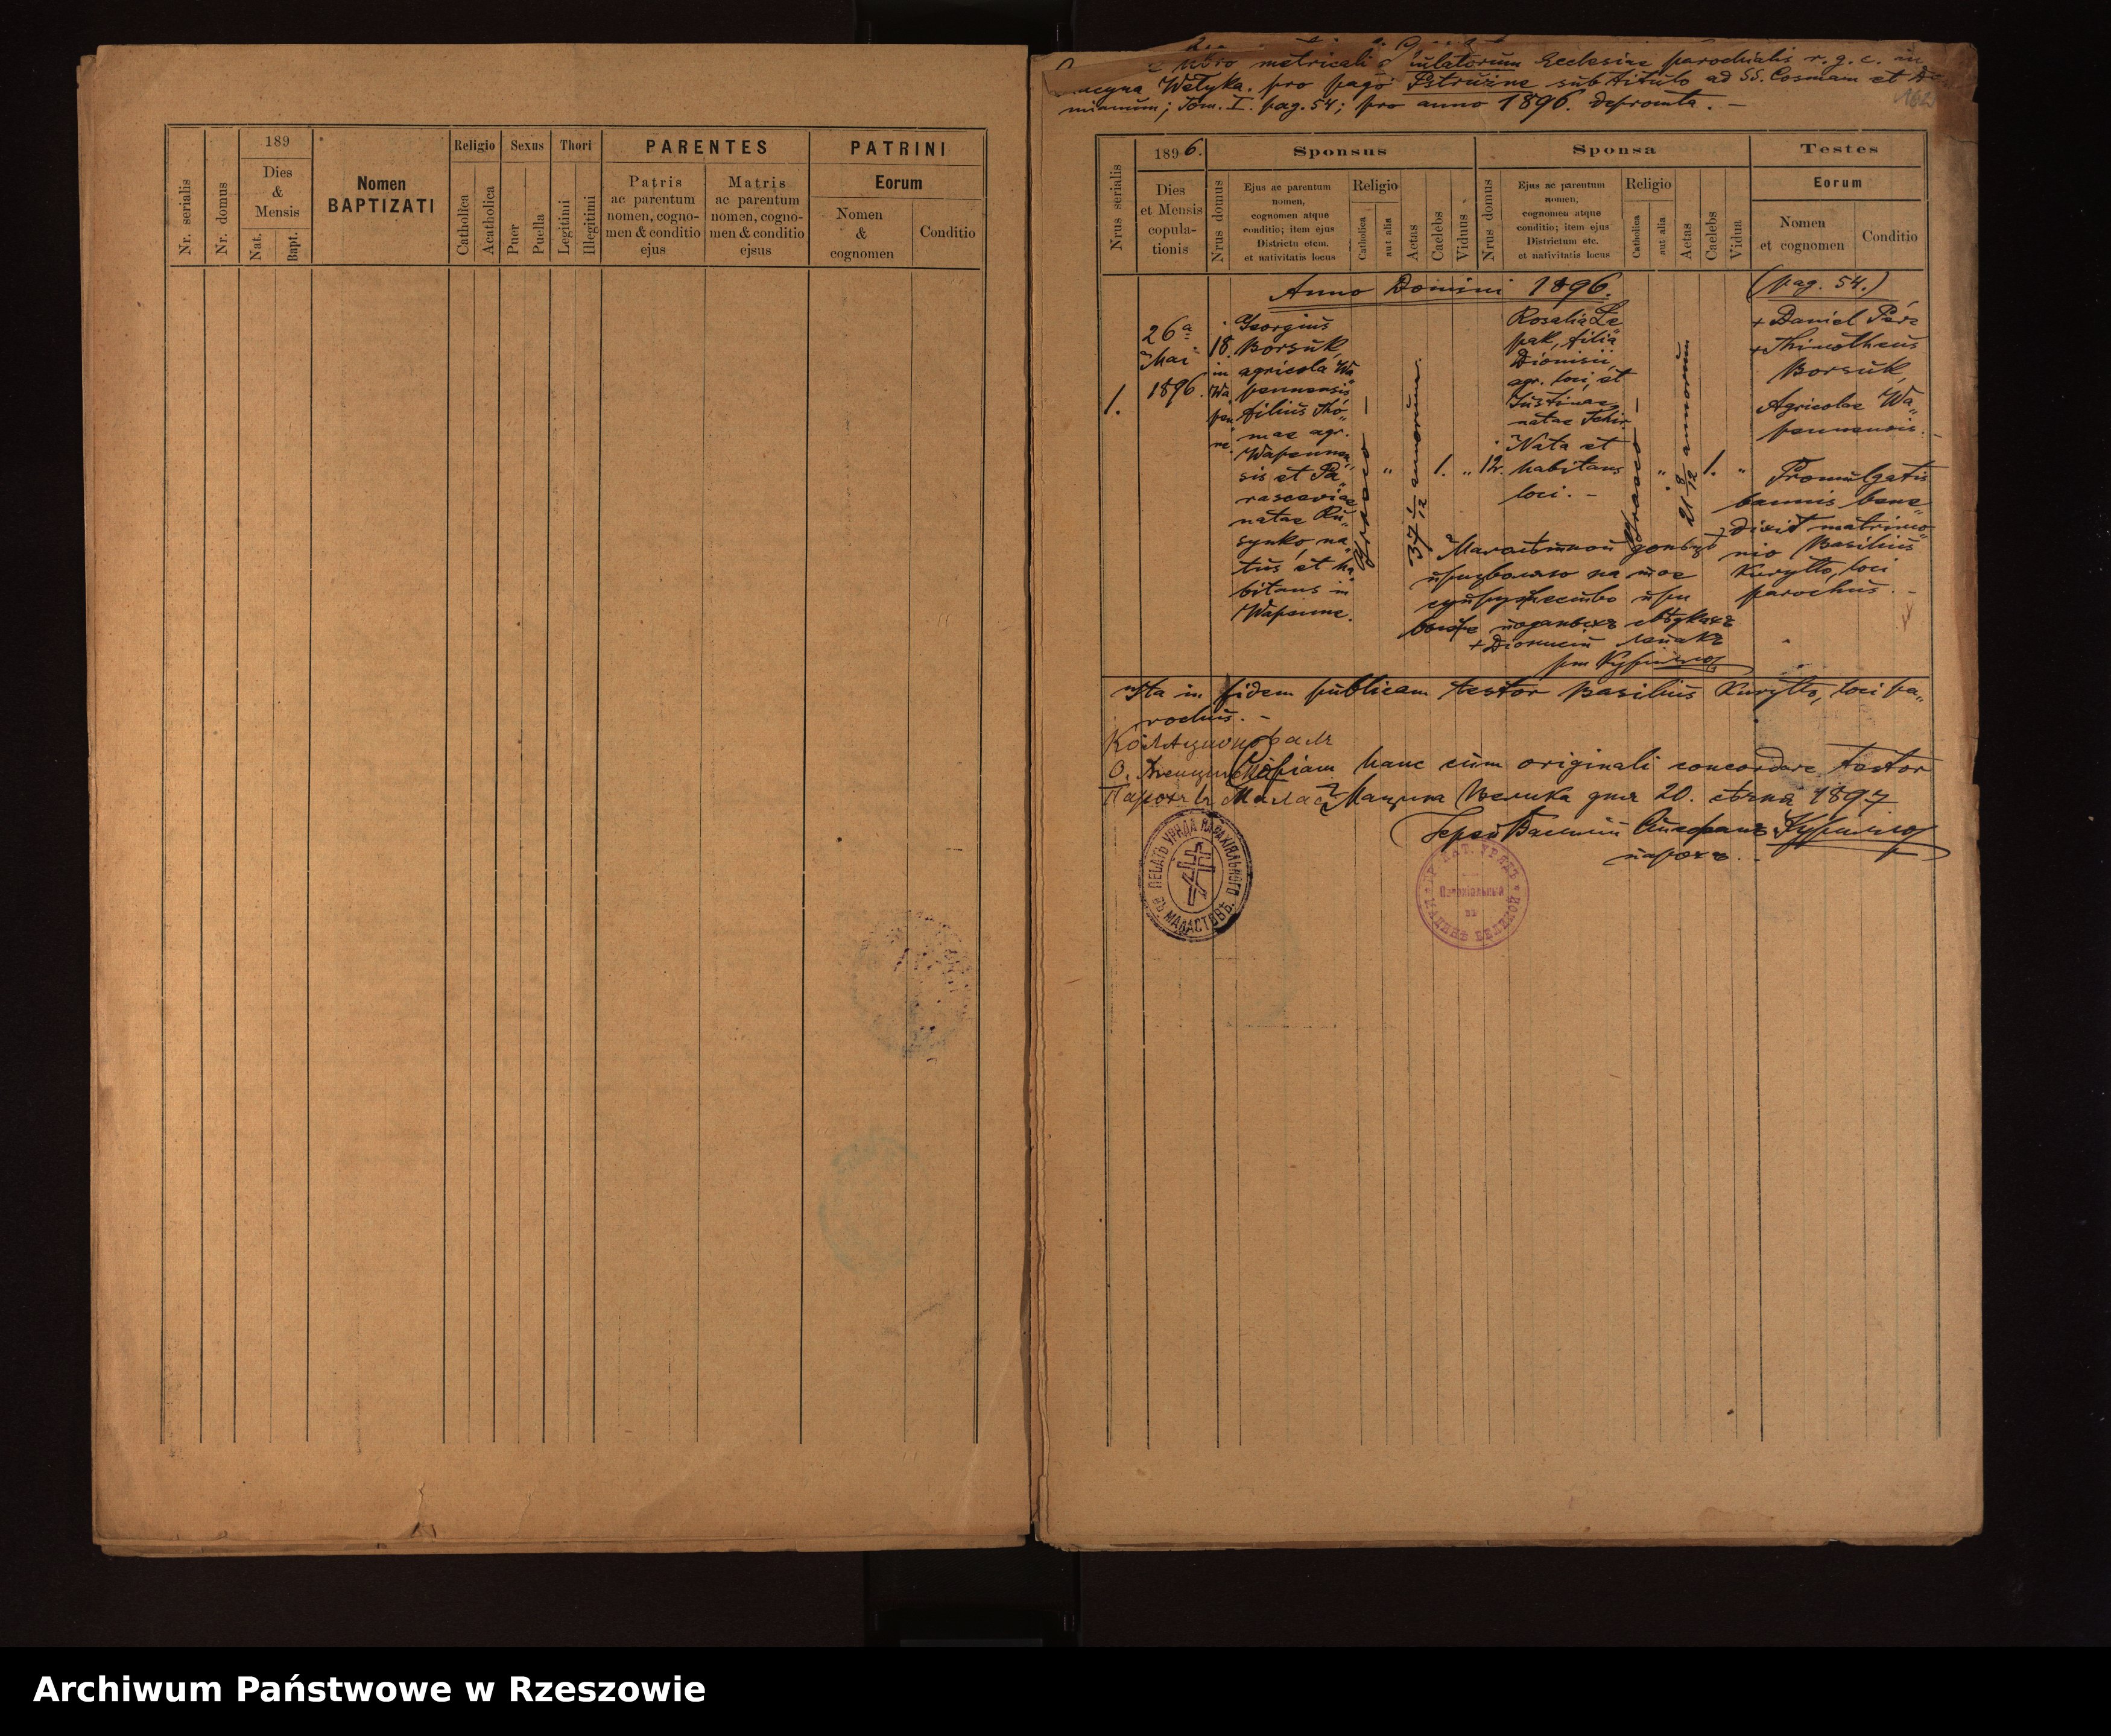 189
Religio
Sexus
Thori
PARENTES
PATRINI
Nr. serialis
Nr. domus
Dies
&
Mensis
Nat.
Bapt.
Nomen
BAPTIZATI
Catholica
Acatholica
Puer
Puella
Legitimi
Illegitimi
Patris
ac parentum
nomen, cogno-
men & conditio
ejus
Matris
ac parentum
nomen, cogno-
men & conditio
ejsus
Eorum
Nomen
&
cognomen
Conditio
libro metricali Copulatorum Ecclesiae parochialis r. g. c. in
Wełyka. pro pago Pstrużne sub titulo ad SS. Cosmam et Da
mianum; Tom. I. pag. 54; pro anno 1896. depromta. –
162
1896.
Sponsus
Sponsa
Testes
Nrus serialis
Dies
et Mensis
copula-
tionis
Nrus domus
Ejus ac parentum
nomen,
cognomen atque
conditio; item ejus
Districtu etcm.
et nativitatis locus
Religio
Catholica
aut alia
Aetas
Caelebs
Viduus
Nrus domus
Ejus ac parentum
nomen,
cognomen atque
conditio; item ejus
Districtum etc.
et nativitatis locus
Religio
Catholica
aut alia
Aetas
Caelebs
Vidua
Eorum
Nomen
et cognomen
Conditio
Anno Domini 1896.
(pag. 54.)
1.
26a
Mai
1896.
18.
in
Wa„
pen„
ne.
Georgius
Borsuk,
agricola Wa„
pennensis
filius Tho„
mae agr.
Wapennen„
sis et Pa„
rasceviae
natae Ru„
synko, na„
tus et ha„
bitans in
Wapenne.
Graeco –
„
37 1/12 annorum.
1.
„
12.
Rosalia Łe„
pak, filia
Dionisii,
agr. loci, et
Justinae
natae Techir.
Nata et
habitans
loci. –
Graeco –
„
21 8/12 annorum
1.
„
+ Daniel Pére
+ Thimotheus
Borsuk,
Agricolae Wa„
pennensis. –
Promulgatis
bannis bene„
dixit matrimo„
nio Basilius
Kuryłło, loci
parochus. –
Малолѣтной доньцѣ
призваляю на тое
супружество при
выше поданыхъ свѣдкахъ
+ Діонисій Лепакъ
рт Курилло
Ita in fidem publicam testor Basilius Kuryłło, loci pa„
rochus. –
Коллаціоновалъ
О.
Парохъ въ Маластовѣ
Copiam hanc cum originali concordare testor
Мацина Велика дня 20. сѣчня 1897
Іерей Василій Курилло
парохъ. –
ПЕЧАТЬ УРЯДА ПАРАХІЯЛЬНОГО
ВЪ МАЛАСТОВѢ.
ГР. КАТ. УРЯДЪ
Парохіальный
въ
МАЦИНѢ ВЕЛИКОЙ
Archiwum Państwowe w Rzeszowie